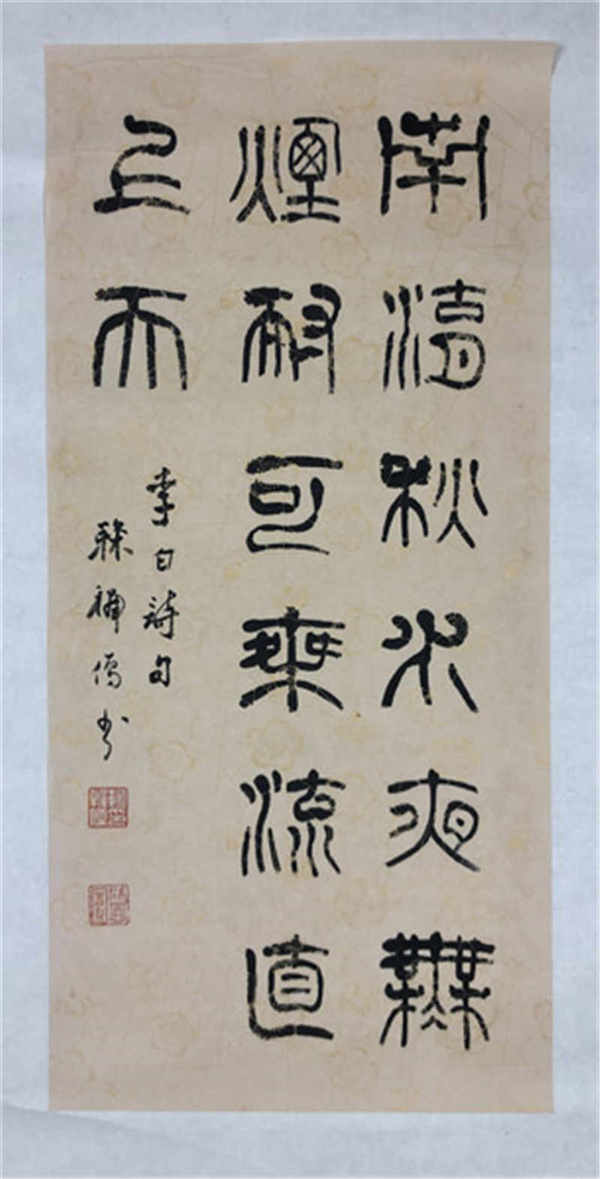 南湖秋水夜無
煙耐可乘流直
上天
李白詩句
書